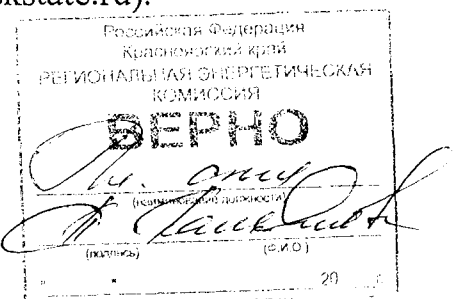 kstate.ru).
Российская Федерация
Красноярский край
РЕГИОНАЛЬНАЯ ЭНЕРГЕТИЧЕСКАЯ
КОМИССИЯ
ВЕРНО
(наименование должности)
(подпись) (Ф.И.О.)
" " 20 г.